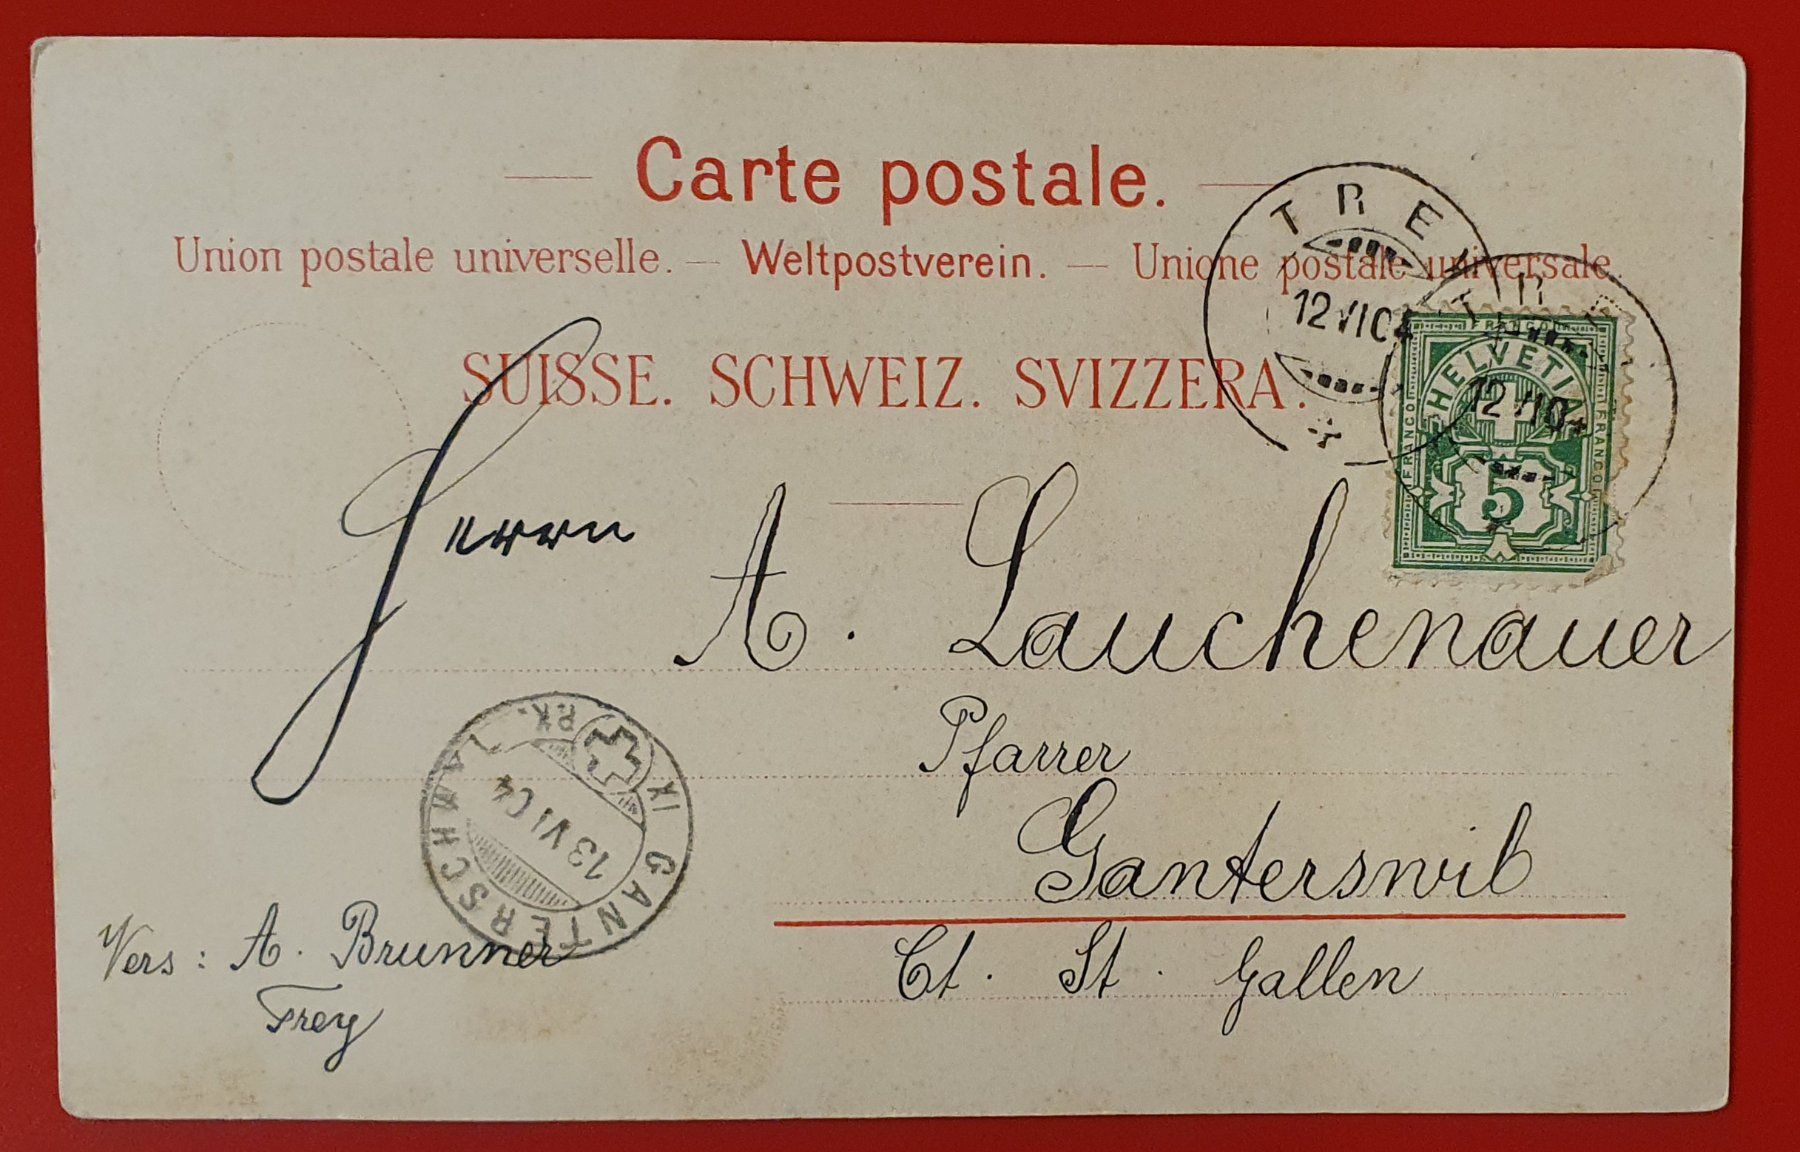 Carte postale.
Union postale universelle. — Weltpostverein. — Unione postale universale.
SUISSE. SCHWEIZ. SVIZZERA.
TRE
12 VI 04
TRE
12 VI 04
FRANCO
FRANCO
FRANCO
HELVETIA
5
Herrn
A. Lauchenauer
Pfarrer
Ganterswil
Ct. St. Gallen
GANTERSCHWYL
13 VI 04
Vers: A. Brunner
Frey